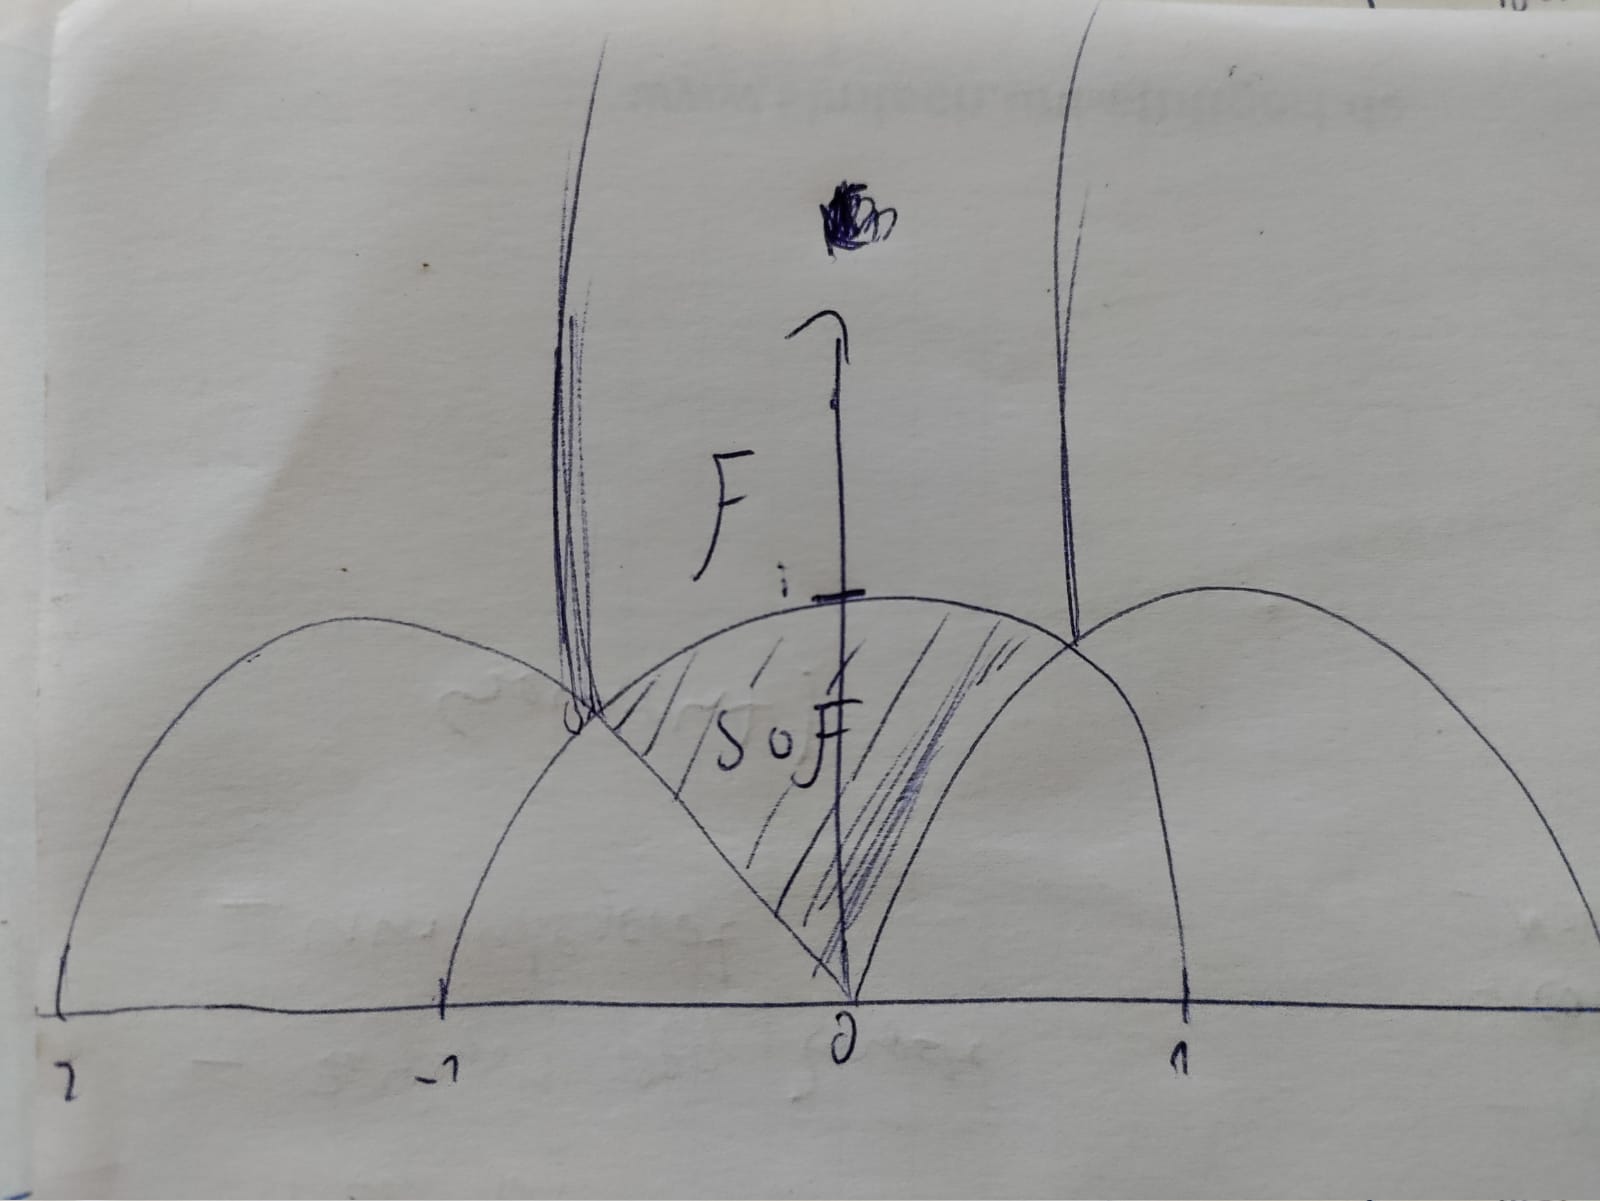 F
i
SoF
2
-1
0
1